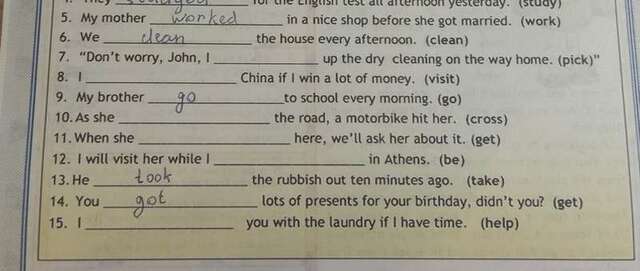 4. They studyed for the English test all afternoon yesterday. (study)
5. My mother worked in a nice shop before she got married. (work)
6. We clean the house every afternoon. (clean)
7. "Don't worry, John, I ____________ up the dry cleaning on the way home. (pick)"
8. I ____________ China if I win a lot of money. (visit)
9. My brother go to school every morning. (go)
10. As she ____________ the road, a motorbike hit her. (cross)
11. When she ____________ here, we'll ask her about it. (get)
12. I will visit her while I ____________ in Athens. (be)
13. He took the rubbish out ten minutes ago. (take)
14. You got lots of presents for your birthday, didn't you? (get)
15. I ____________ you with the laundry if I have time. (help)